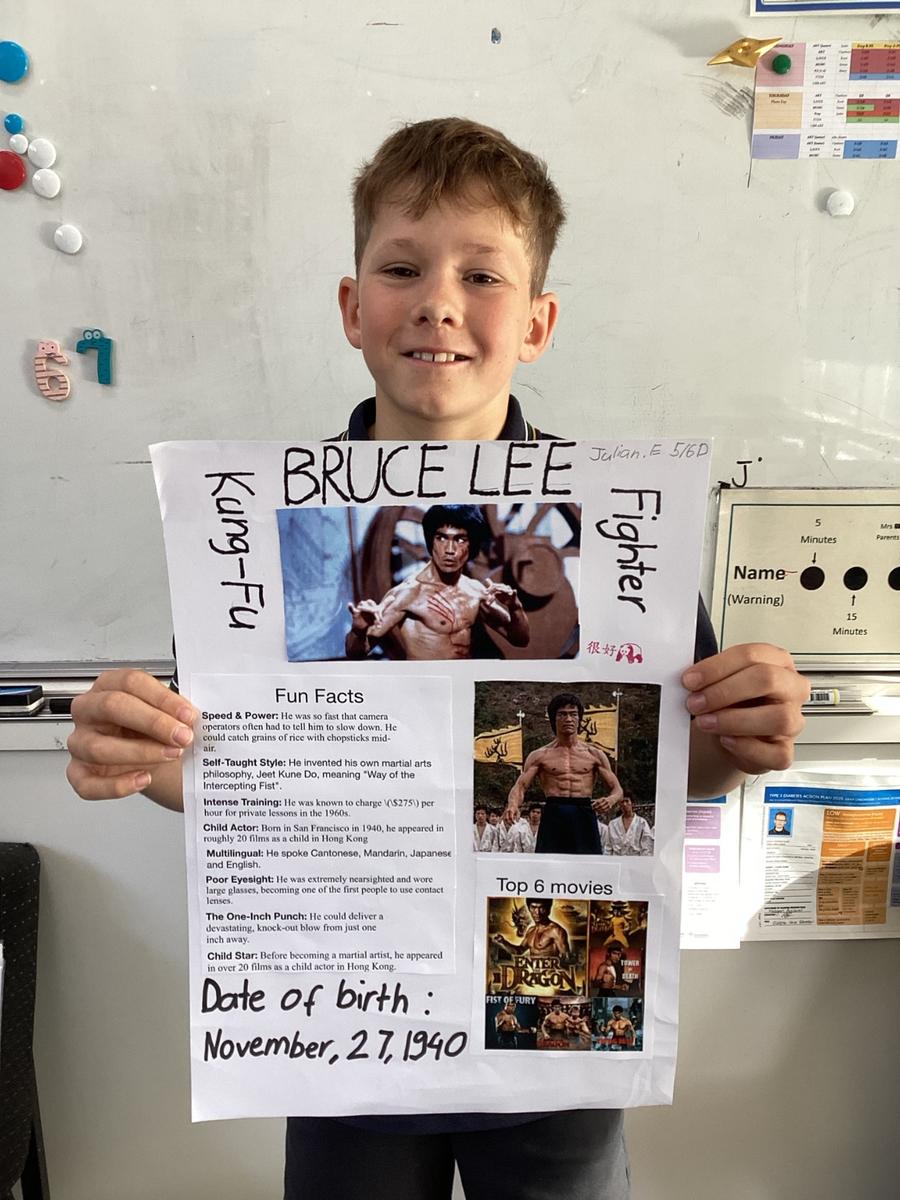 BRUCE LEE
Julian.E 5/6D
Kung-Fu
Fighter
很好
Fun Facts
Speed & Power: He was so fast that camera
operators often had to tell him to slow down. He
could catch grains of rice with chopsticks mid-
air.
Self-Taught Style: He invented his own martial arts
philosophy, Jeet Kune Do, meaning "Way of the
Intercepting Fist".
Intense Training: He was known to charge \(\$275\) per
hour for private lessons in the 1960s.
Child Actor: Born in San Francisco in 1940, he appeared in
roughly 20 films as a child in Hong Kong
Multilingual: He spoke Cantonese, Mandarin, Japanese
and English.
Poor Eyesight: He was extremely nearsighted and wore
large glasses, becoming one of the first people to use contact
lenses.
The One-Inch Punch: He could deliver a
devastating, knock-out blow from just one
inch away.
Child Star: Before becoming a martial artist, he appeared
in over 20 films as a child actor in Hong Kong.
Date of birth :
November, 27, 1940
Top 6 movies
ENTER
THE
DRAGON
TOWER
OF
DEATH
FIST OF FURY
67
J
5
Minutes
Mrs
Parents
Name
(Warning)
15
Minutes
THURSDAY
FRIDAY
LOW